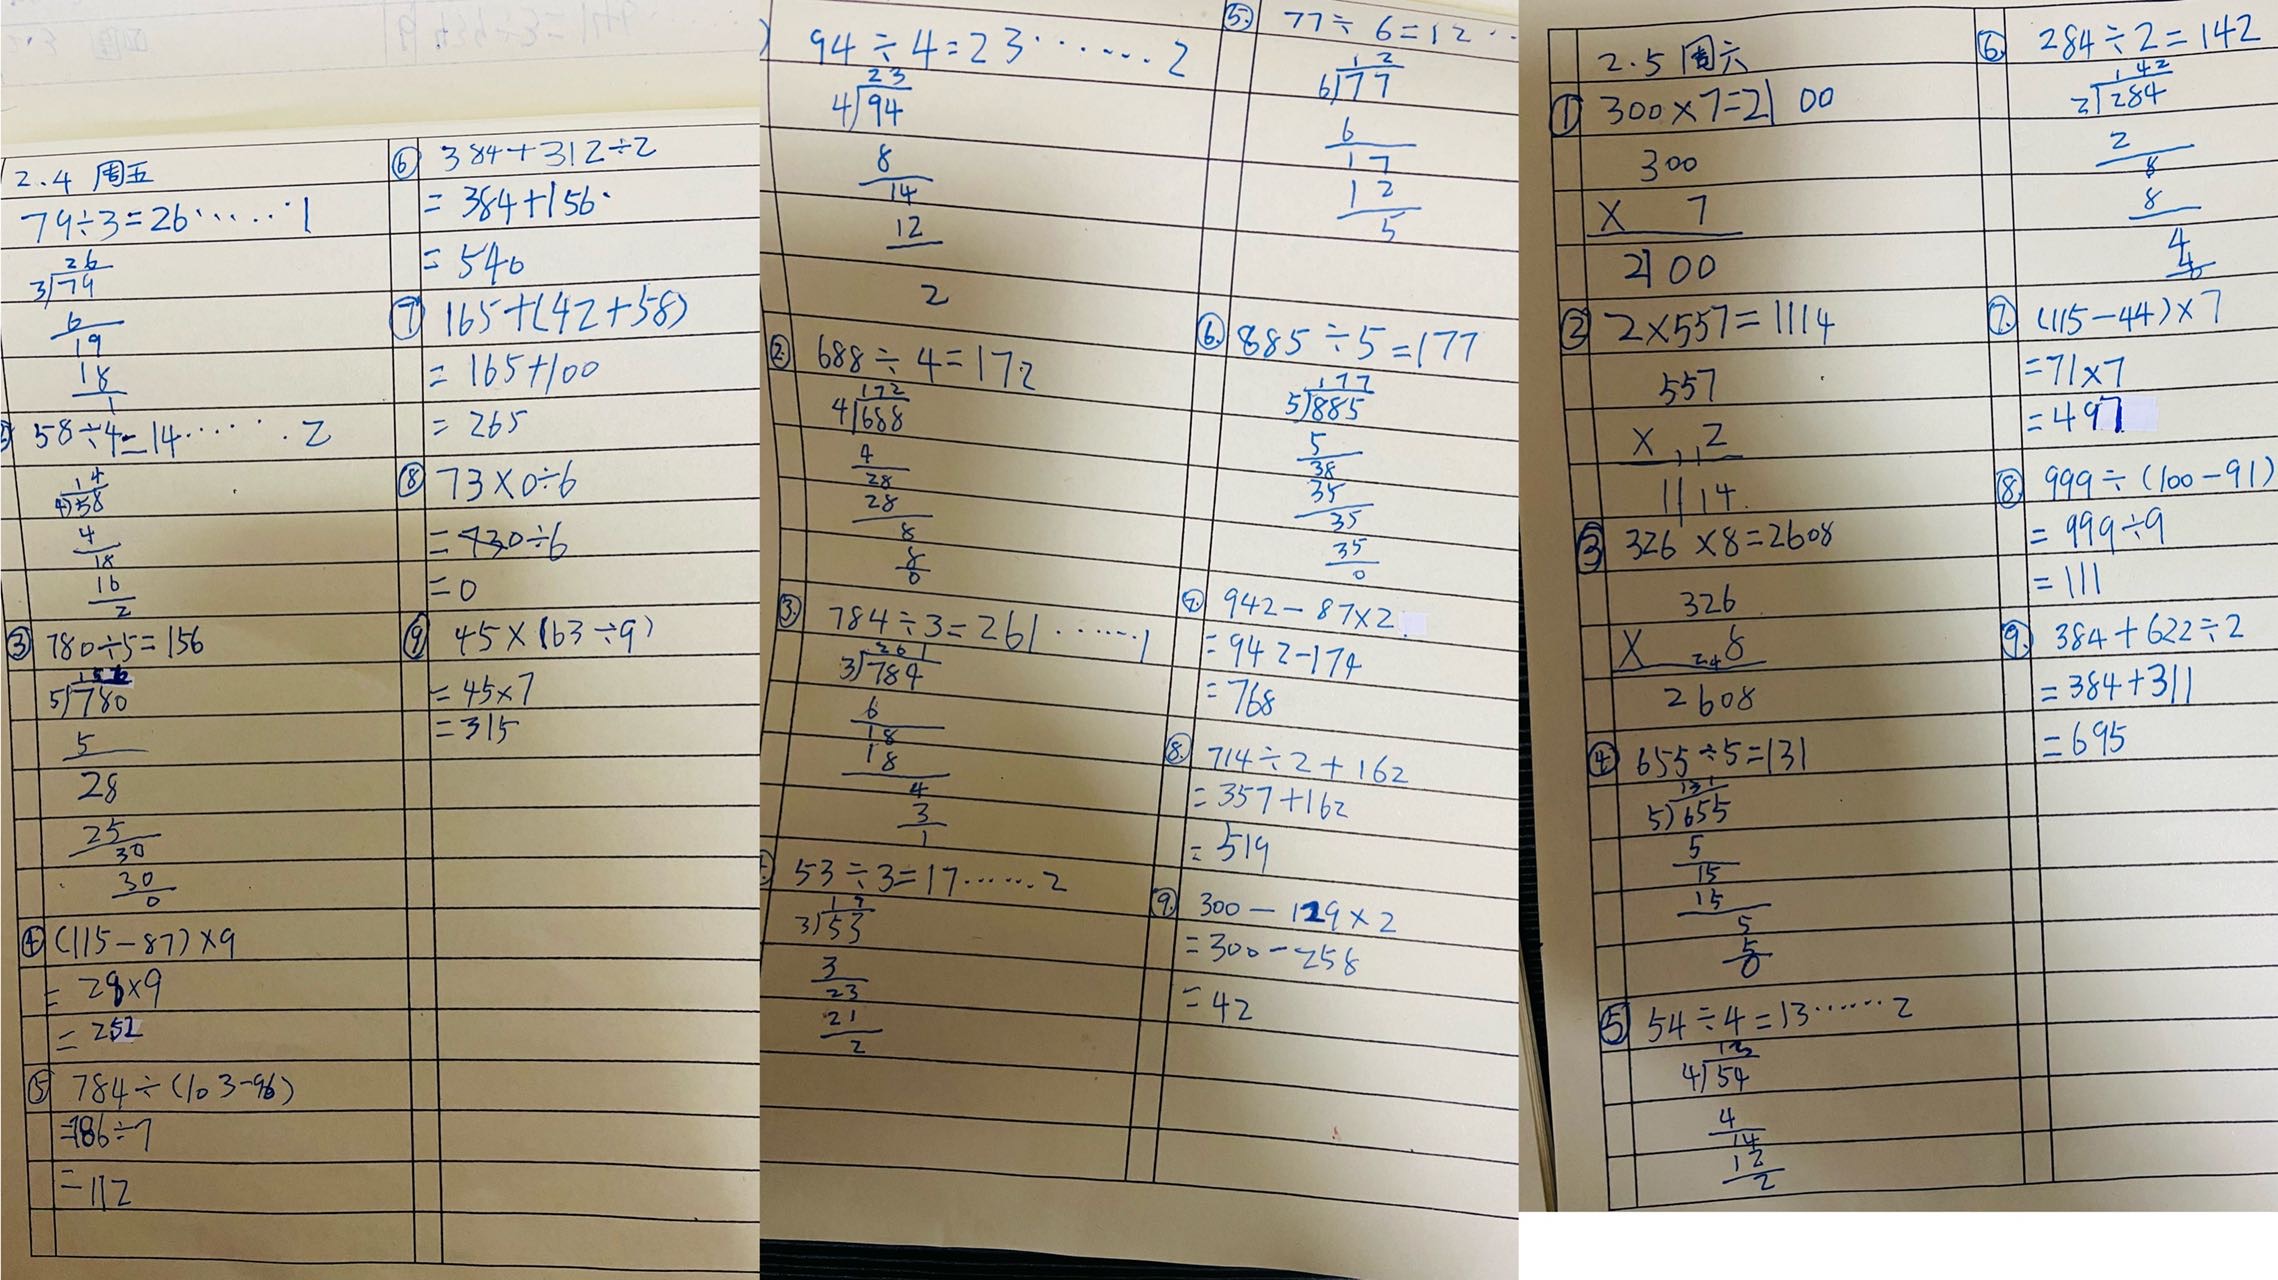 2.4 周五
79÷3=26······1
26
3)79
6
19
18
1
58÷4=14······2
14
4)58
4
18
16
2
③ 780÷5=156
156
5)780
5
28
25
30
30
0
④ (115-87)×9
= 28×9
= 252
⑤ 784÷(103-96)
=786÷7
=112
⑥ 384+312÷2
= 384+156
= 540
⑦ 165+(42+58)
= 165+100
= 265
⑧ 73×0÷6
= 730÷6
= 0
⑨ 45×(63÷9)
= 45×7
= 315
94÷4=23······2
23
4)94
8
14
12
2
② 688÷4=172
172
4)688
4
28
28
8
8
0
③ 784÷3=261······1
261
3)784
6
18
18
4
3
1
53÷3=17······2
17
3)53
3
23
21
2
⑤ 77÷6=12··
12
6)77
6
17
12
5
⑥ 885÷5=177
177
5)885
5
38
35
35
35
0
⑦ 942-87×2
= 942-174
= 768
⑧ 714÷2+162
= 357+162
= 519
⑨ 300-129×2
= 300-258
= 42
2.5 周六
① 300×7=2100
300
× 7
2100
② 2×557=1114
557
× 2
11
1114
③ 326×8=2608
326
× 8
24
2608
④ 655÷5=131
131
5)655
5
15
15
5
5
0
⑤ 54÷4=13······2
13
4)54
4
14
12
2
⑥ 284÷2=142
142
2)284
2
8
8
4
4
0
⑦ (115-44)×7
=71×7
=497
⑧ 999÷(100-91)
= 999÷9
= 111
⑨ 384+622÷2
= 384+311
= 695